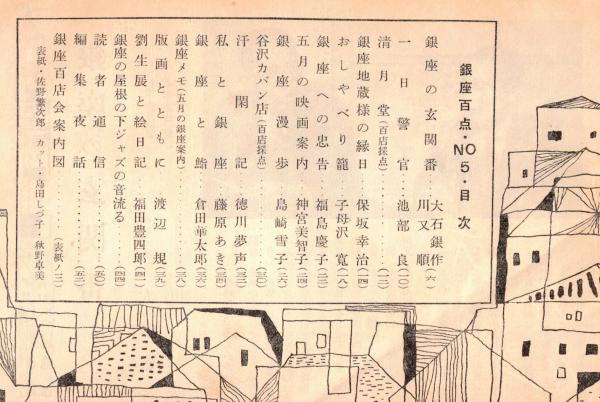 銀座百点・NO 5・目次
銀座の玄関番‥大石銀作 川又順(六)
一日警官‥池部良(一〇)
清月堂(百店採点)‥‥(一二)
銀座地蔵様の縁日‥保坂幸治(一四)
おしゃべり籠‥子母沢寛(一八)
銀座への忠告‥福島慶子(二二)
五月の映画案内‥神宮美智子(二四)
銀座漫歩‥島崎雪子(二六)
谷沢カバン店(百店採点)‥‥(三〇)
汗閑記‥徳川夢声(三二)
私と銀座‥藤原あき(三四)
銀座と鮨‥倉田華太郎(三六)
銀座メモ(五月の銀座案内)‥‥(三八)
版画とともに‥渡辺規(三九)
劉生展と絵日記‥福田豊四郎(四一)
銀座の屋根の下ジャズの音流る‥(四四)
読者通信‥‥(五〇)
編集夜話‥‥(五二)
銀座百店会案内図‥‥(表紙ノ三)
表紙・佐野繁次郎 カット・島田しづ子・秋野卓美